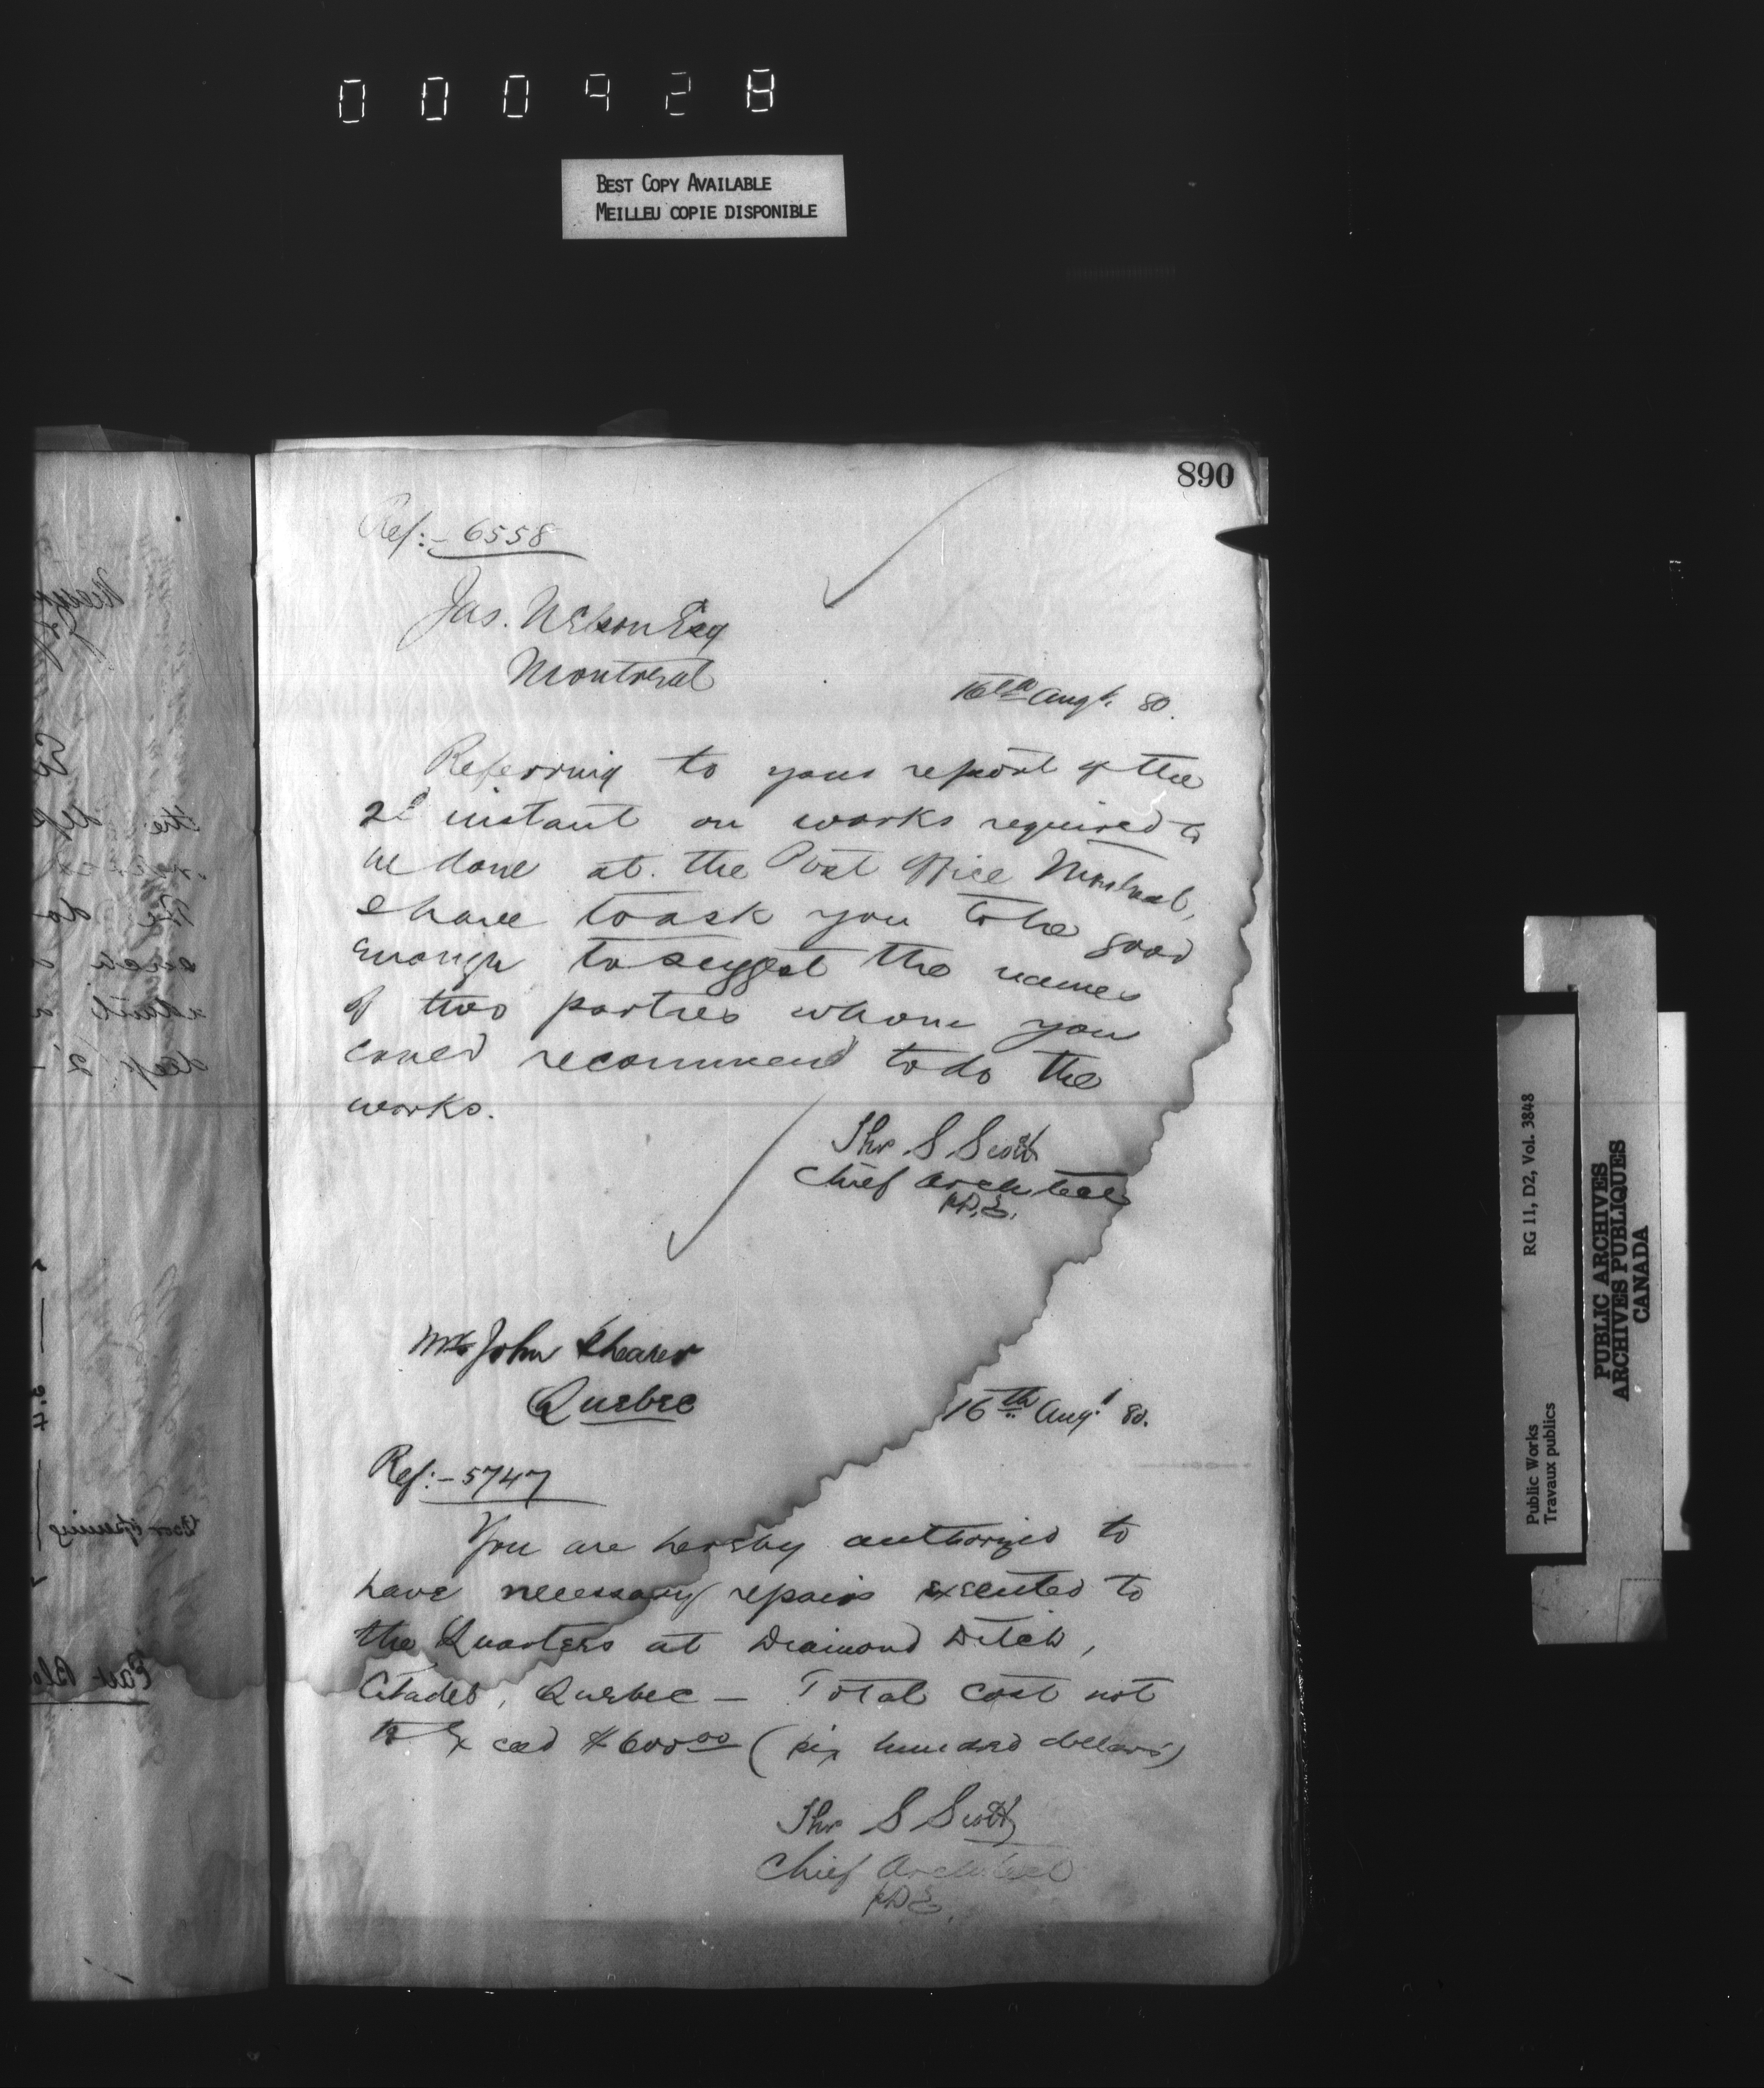 000928
BEST COPY AVAILABLE
MEILLEU COPIE DISPONIBLE
890
Ref:- 6558
Jas. Nelson Esq
Montreal
16th Augt. 80.
Referring to your report of the
2d instant on works required to
be done at the Post Office Montreal,
I have to ask you to be good
enough to suggest the names
of two parties whom you
could recommend to do the
works.
Thos S Scott
Chief Architect
p D.E.
Mr John Shearer
Quebec
16th Augt 80.
Ref:- 5747
You are hereby authorized to
have necessary repairs executed to
the Quarters at Diamond Ditch,
Citadel, Quebec - Total cost not
to Exceed $600.00 (six hundred dollars)
Thos S Scott
Chief Architect
p D.E.
Public Works
Travaux publics
RG 11, D2, Vol. 3848
PUBLIC ARCHIVES
ARCHIVES PUBLIQUES
CANADA